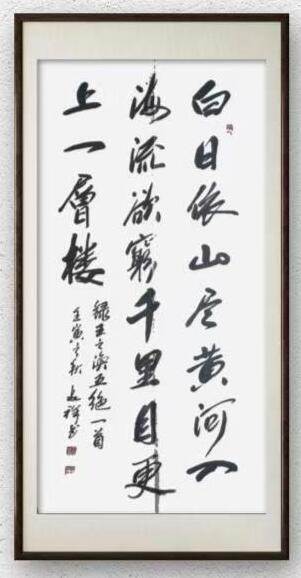 白日依山尽黄河入
海流欲窮千里目更
上一層楼
録王之渙五绝一首
壬寅之秋 祥书